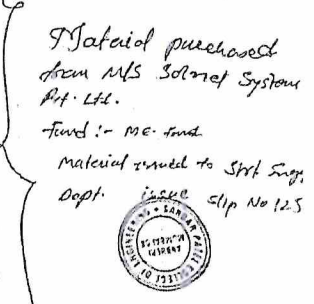 Material purchased
from M/S Solnet System
Pvt. Ltd.
Fund :- ME. fund
Material issued to Strt Engg.
Dept. issue slip No 125
SARDAR PATEL COLLEGE OF ENGINEERING